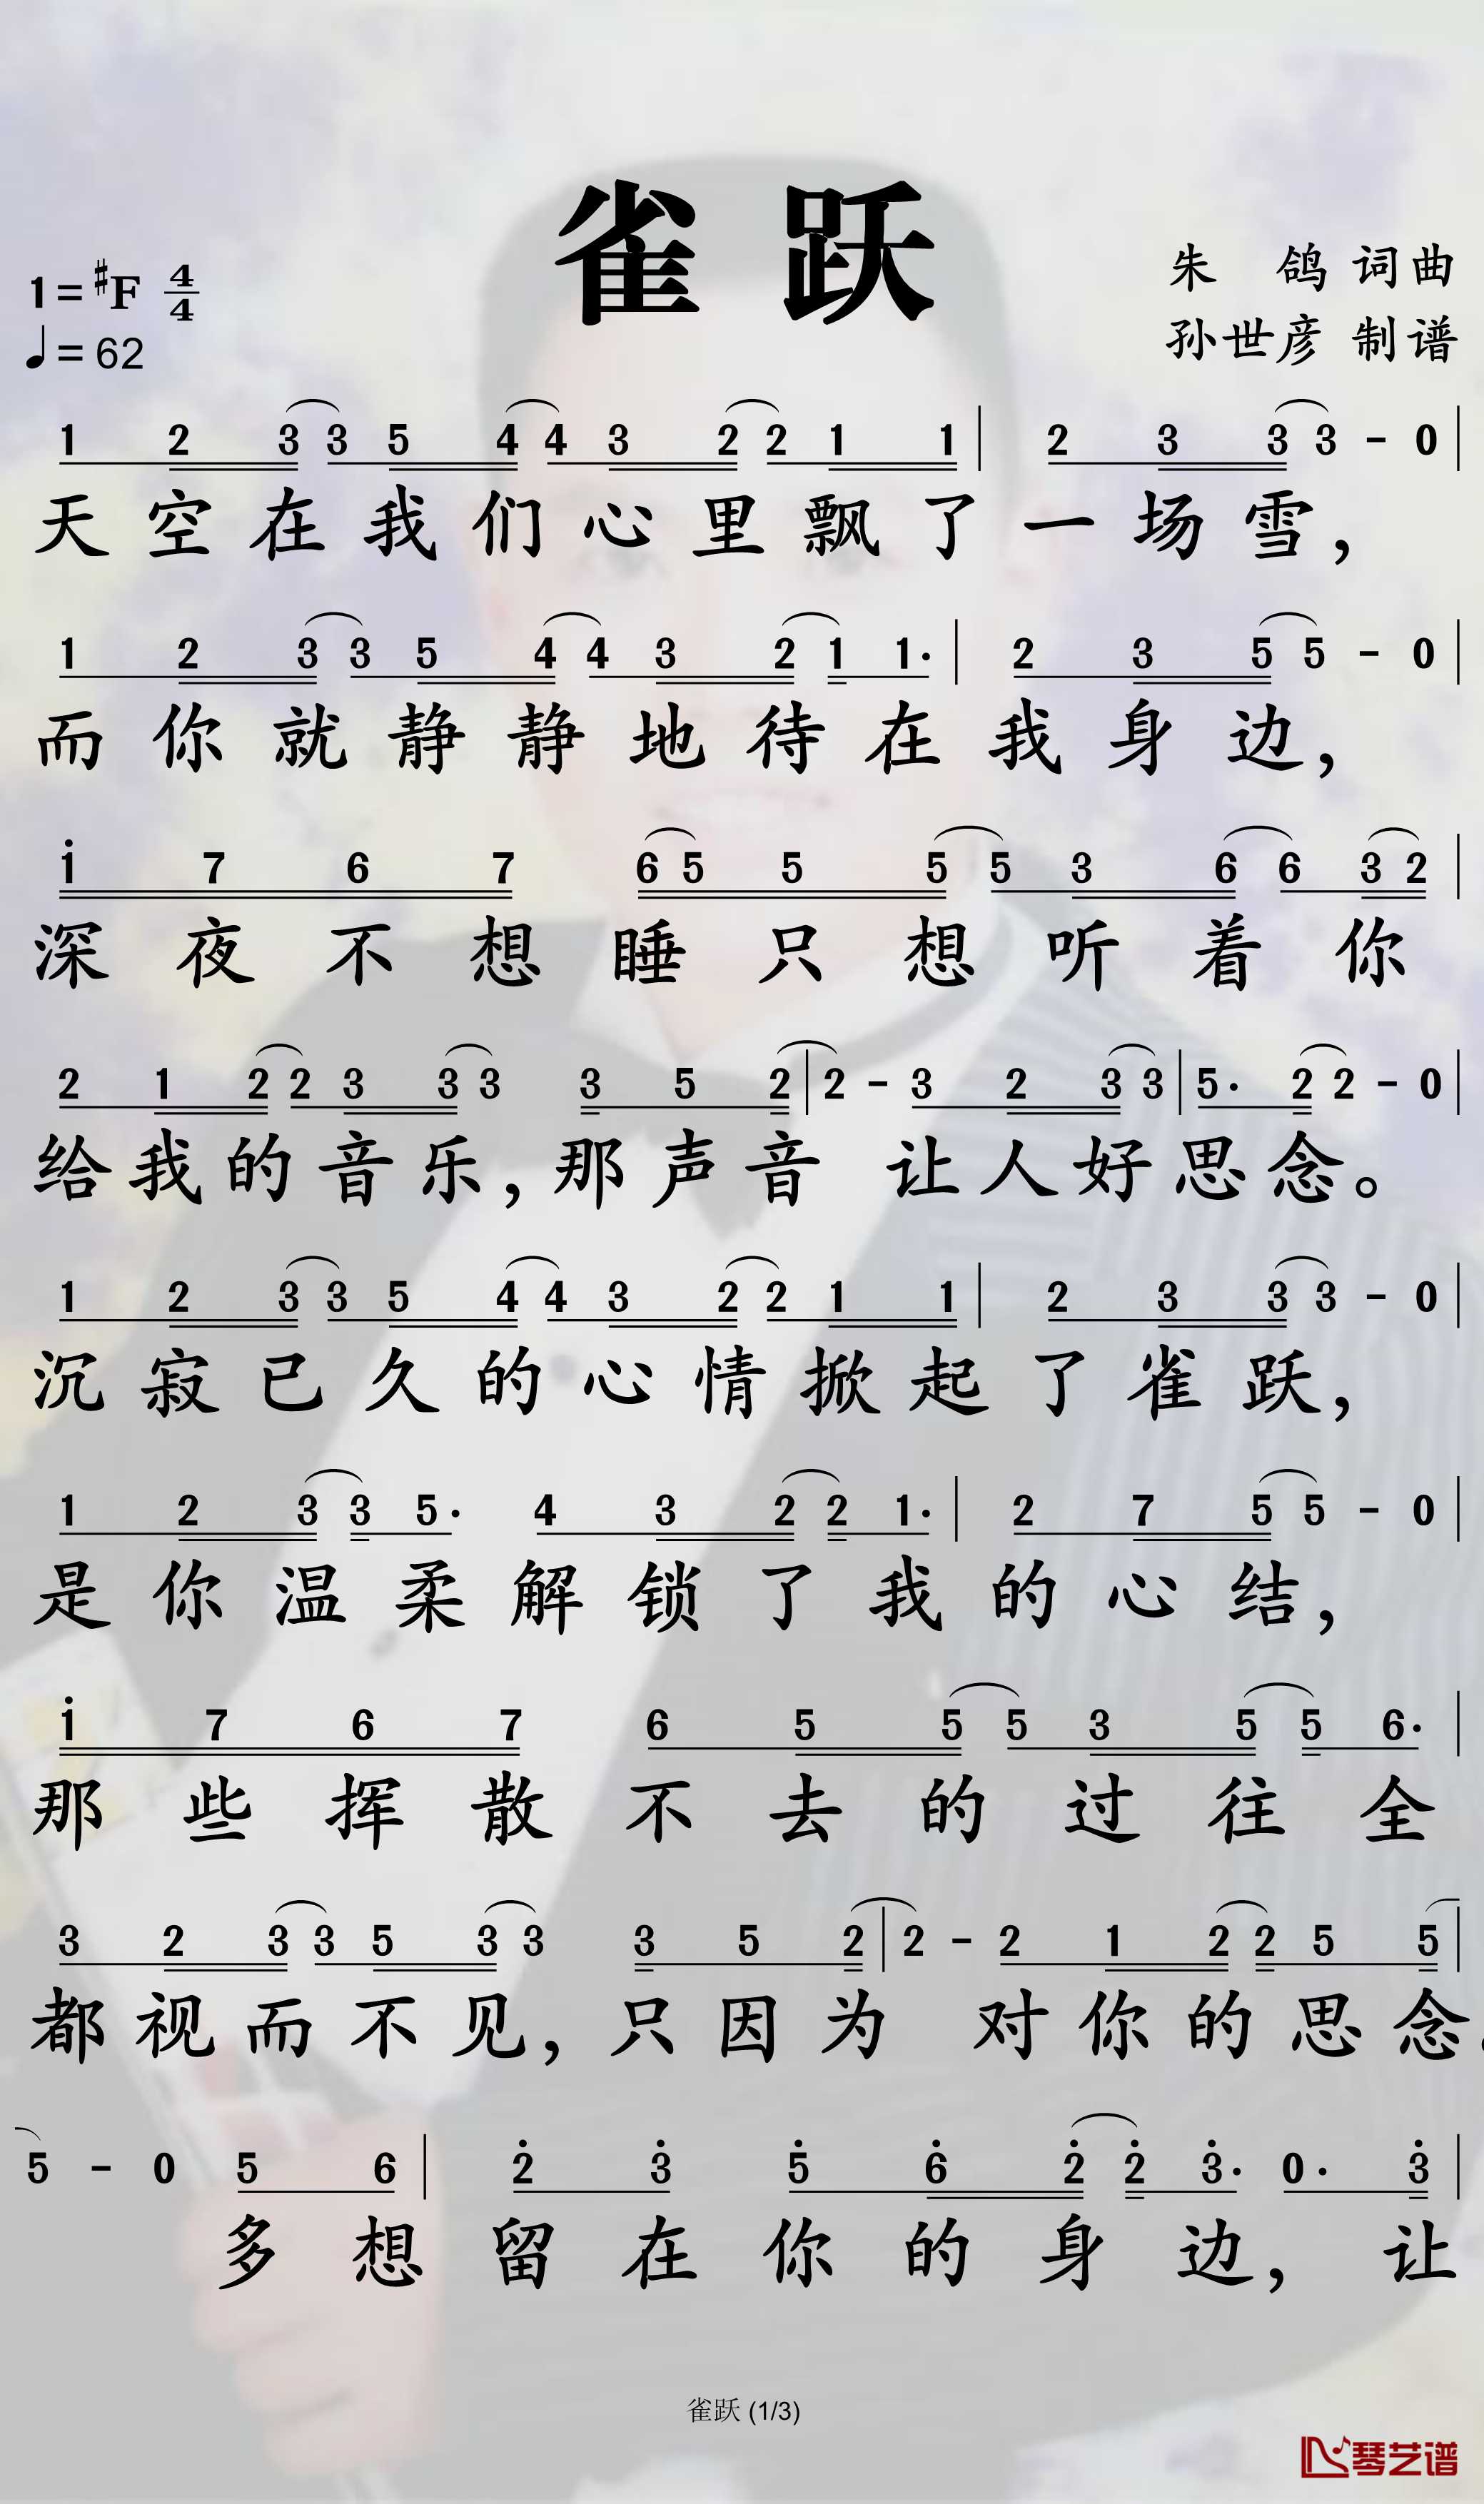 雀 跃
1=♯F 4/4
♩=62
朱 鸽 词曲
孙世彦 制谱
1 2 3 3 5 4 4 3 2 2 1 1 | 2 3 3 3 - 0 |
天空在我们心里飘了一场雪，
1 2 3 3 5 4 4 3 2 1 1· | 2 3 5 5 - 0 |
而你就静静地待在我身边，
i 7 6 7 6 5 5 5 5 3 6 6 3 2 |
深夜不想睡只想听着你
2 1 2 2 3 3 3 3 5 2 | 2 - 3 2 3 3 | 5· 2 2 - 0 |
给我的音乐，那声音 让人好思念。
1 2 3 3 5 4 4 3 2 2 1 1 | 2 3 3 3 - 0 |
沉寂已久的心情掀起了雀跃，
1 2 3 3 5· 4 3 2 2 1· | 2 7 5 5 - 0 |
是你温柔解锁了我的心结，
i 7 6 7 6 5 5 5 3 5 5 6· |
那些挥散不去的过往全
3 2 3 3 5 3 3 3 5 2 | 2 - 2 1 2 2 5 5 |
都视而不见，只因为 对你的思念。
5 - 0 5 6 | 2̇ 3̇ 5̇ 6̇ 2̇ 2̇ 3̇· 0· 3̇ |
多想留在你的身边，让
雀跃 (1/3)
琴艺谱